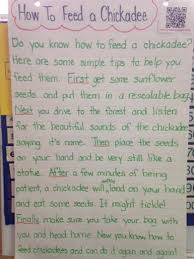 How To Feed a Chickadee
Do you know how to feed a chickadee?
Here are some simple tips to help you
feed them. First get some sunflower
seeds and put them in a resealable bag.
Next you drive to the forest and listen
for the beautiful sounds of the chickadee
saying it's name. Then place the seeds
on your hand and be very still like a
statue. After a few minutes of being
patient, a chickadee will land on your hand
and eat some seeds. It might tickle!
Finally make sure you take your bag with
you and head home. Now you know how to
feed chickadees and can do it again and again!